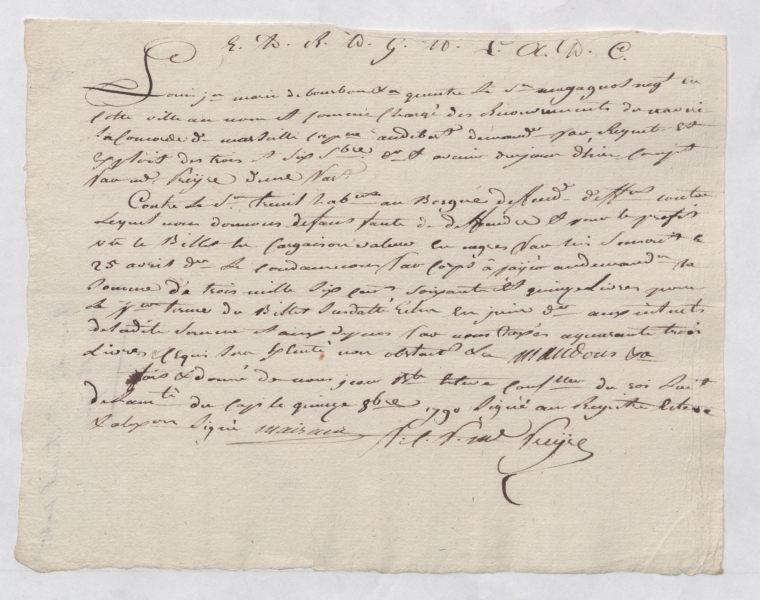 E. A. R. D. G. D. L. A. D. C.
Louis jn marie de bourbon &a entre Le Sr magagnos negt en
Cette ville au nom et comme Chargé des Recouvrements du navire
La Concorde de marseille Cape audibert demandr par Requete et
Exploit des trois et Six 8bre dr et avenir du jour d'hier Compt
Par me preyre d'une Part
Contre Le Sr au Borgne deffendr d'effaus contre
Lequel nous donnons defaut faute de deffendre et pour le profit
vu le Billet de Cargaison valeur en negres Par lui Souscrit le
25 avril dr Le condamnons Par Corps à payer au demandr la
Somme de trois mille Six Cens Soixante et quinze Livres pour
Le per terme du Billet Susdatté Echu en juin dr aux interets
de ladite Somme et aux depens Par nous taxés a quarante trois
Livres Ce qui sera Executé non obstant &a Mandons &a
fait & donné de nous jean Bte Consller du roi Lieut
de Lamté du Cap le quinze 8bre 1790 Signé au Registre
& a lexpon Signé
P. C. P. me preyre